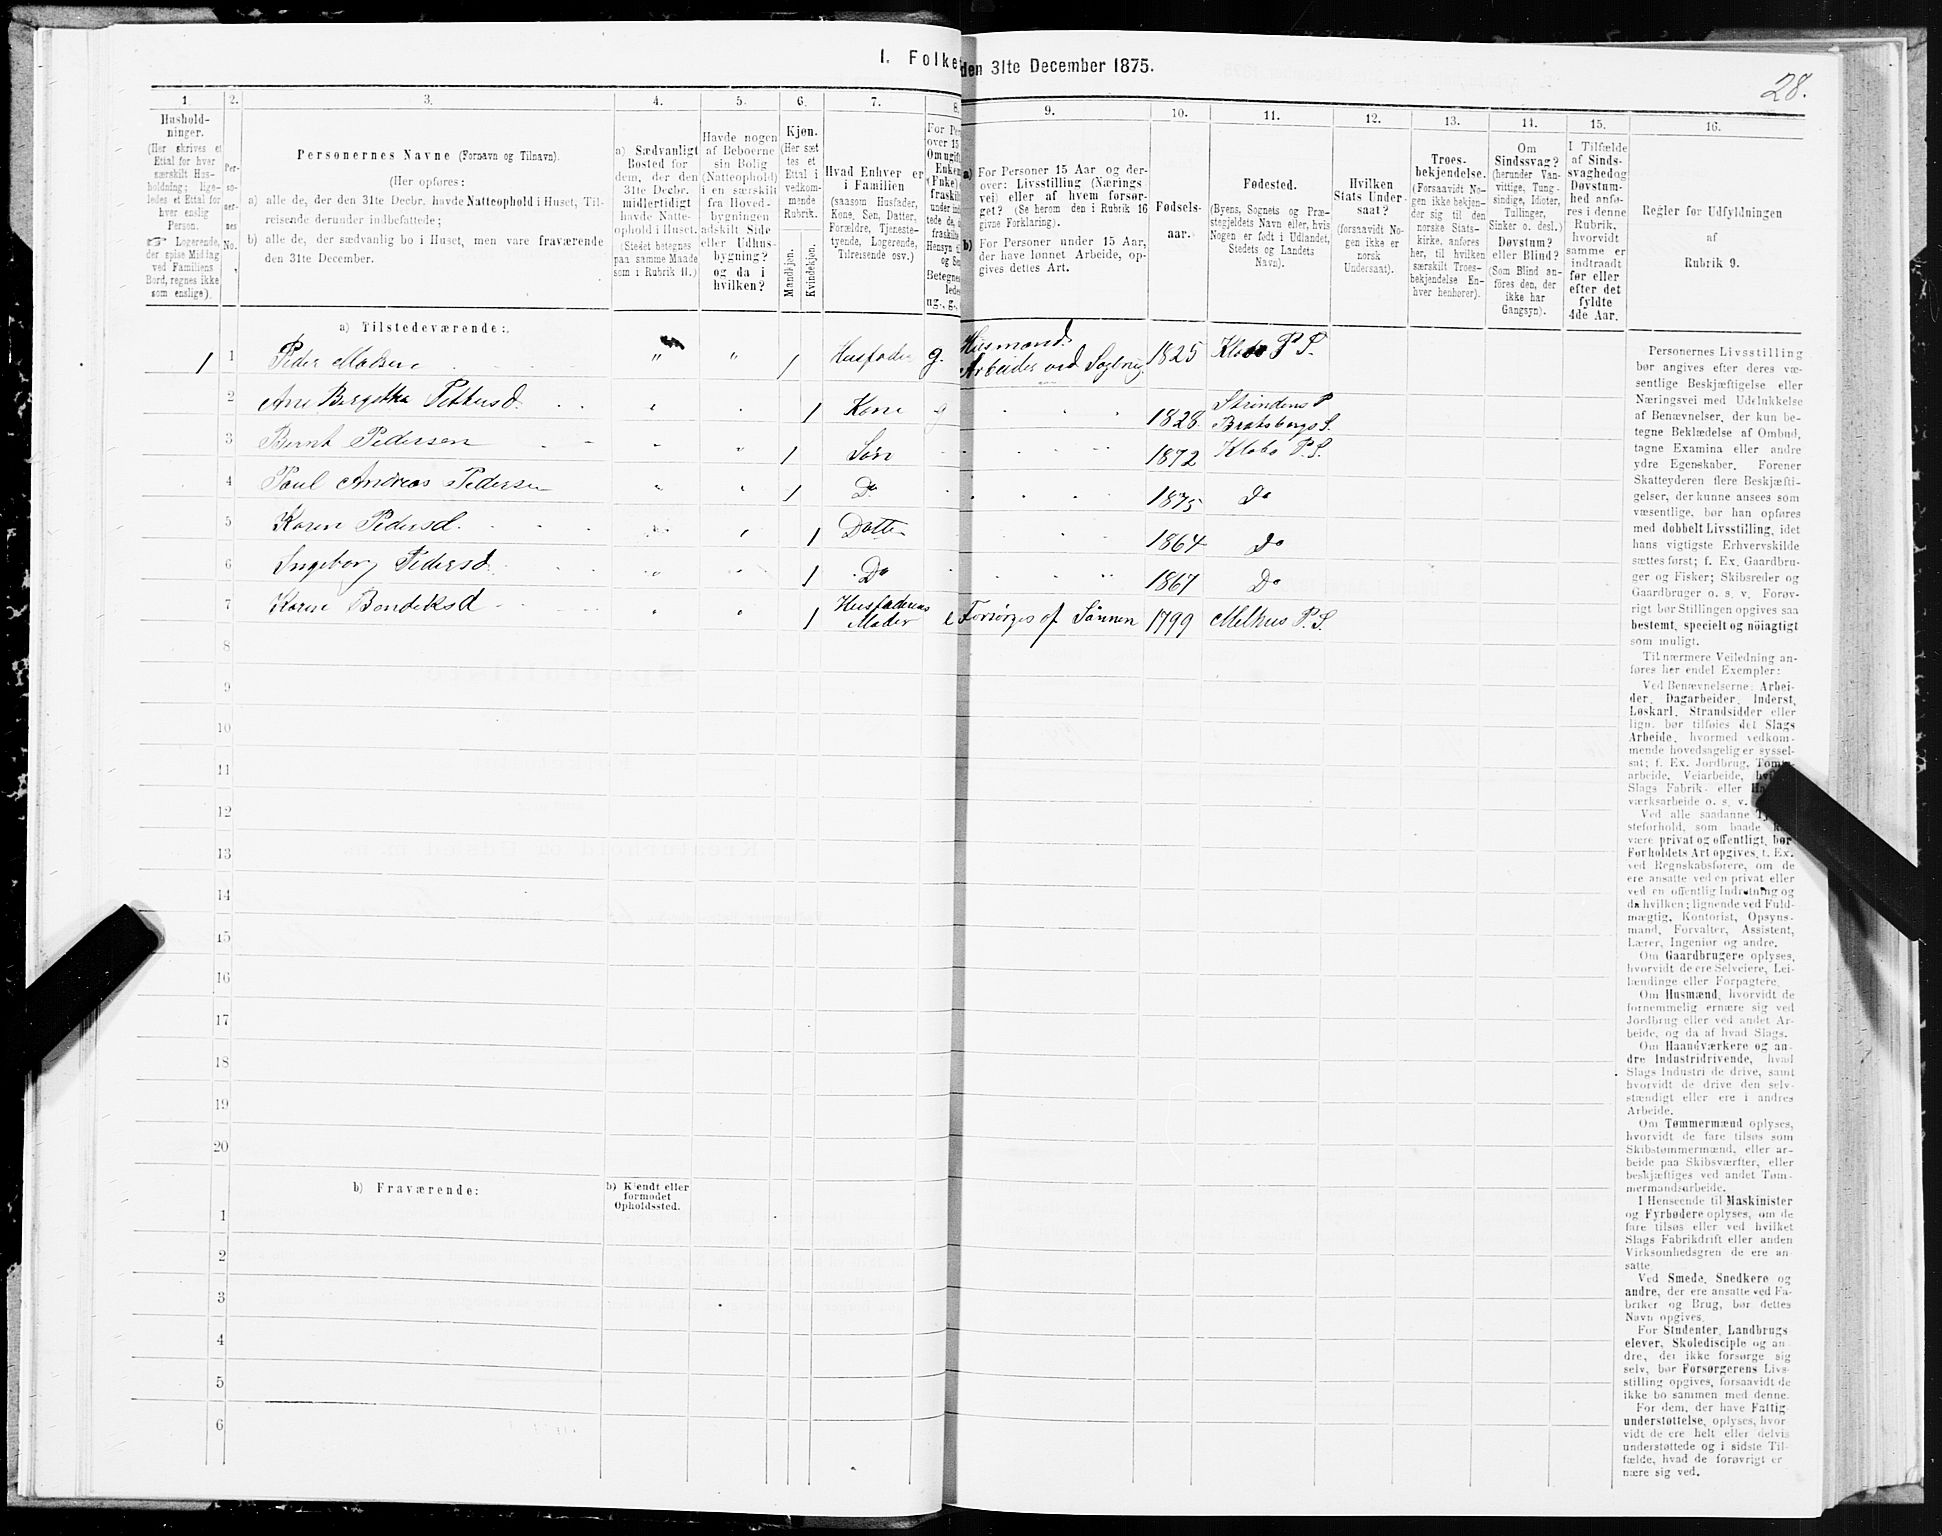 I. Folke
den 31te December 1875.
28.
1.
Hushold-
ninger.
(Her skrives et
Ettal for hver
særskilt Hus-
holdning; lige-
ledes et Ettal for
hver enslig
Person.
☞ Logerende,
der spise Middag
ved Familiens
Bord, regnes ikke
som enslige).
2.
Per-
so-
ner-
nes
No.
3.
Personernes Navne (Fornavn og Tilnavn).
(Her opføres:
a) alle de, der den 31te Decbr. havde Natteophold i Huset, Til-
reisende derunder indbefattede;
b) alle de, der sædvanlig bo i Huset, men vare fraværende
den 31te December.
4.
a) Sædvanligt
Bosted for
dem, der den
31te Decbr.
midlertidigt
havde Natte-
ophold i Huset.
(Stedet betegnes
paa samme Maade
som i Rubrik 11.)
5.
Havde nogen
af Beboerne
sin Bolig
(Natteophold)
i en særskilt
fra Hoved-
bygningen
adskilt Side
eller Udhus-
bygning?
og da i
hvilken?
6.
Kjøn.
(Her sæt
tes et
Ettal i
vedkom-
mende
Rubrik.
Mandkjøn.
Kvindekjøn.
7.
Hvad Enhver er
i Familien
(saasom Husfader,
Kone, Søn, Datter,
Forældre, Tjeneste-
tyende, Logerende,
Tilreisende osv.)
8.
For Per
over 15
Om ugift
Enken
(Enke)
fraskilt
Betegnes
ledes
ug., g.,
9.
a) For Personer 15 Aar og der-
over: Livsstilling (Nærings
vei) eller af hvem forsør-
get? (Se herom den i Rubrik 16
givne Forklaring).
b) For Personer under 15 Aar,
der have lønnet Arbeide, op-
gives dettes Art.
10.
Fødsels-
aar.
11.
Fødested.
(Byens, Sognets og Præ-
stegjeldets Navn eller, hvis
Nogen er født i Udlandet,
Stedets og Landets
Navn).
12.
Hvilken
Stats Under-
saat?
(forsaavidt No-
gen ikke er
norsk
Undersaat).
13.
Troes-
bekjendelse.
(Forsaavidt No-
gen ikke bekjen-
der sig til den
norske Stats-
kirke, anføres
her, til hvilken
særskilt Troes-
bekjendelse En-
hver henhører).
14.
Om
Sindssvag?
(herunder Van-
vittige, Tung-
sindige, Idioter,
Tullinger,
Sinker o. desl.)
Døvstum?
eller Blind?
(Som Blind an-
føres den, der
ikke har
Gangsyn).
15.
I Tilfælde
af Sinds-
svaghed og
Døvstum-
hed anfø-
res i denne
Rubrik,
hvorvidt
samme er
indtraadt
før eller
efter det
fyldte
4de Aar.
16.
Regler for Udfyldningen
af
Rubrik 9.
a) Tilstedeværende:
1 1 Peder Madsen " " 1 Husfader g. Husmand. Arbeider ved Sagbrug. 1825 Klæbo P. S.
2 Ane Bergitha Pettersd. 1 Kone g 1828 Strindens P. Bratsbergs S.
3 Bernt Pedersen 1 Søn 1872 Klæbo P. S.
4 Paul Andreas Pedersen 1 Do 1875 Do
5 Karen Pedersd. 1 Datter 1864 Do
6 Ingeborg Pedersd. 1 Do 1867 Do
7 Karen Bendiksd 1 Husfaderens Moder e Forsørges af Sønnen 1799 Melhus P. S.
8
9
10
11
12
13
14
15
16
17
18
19
20
b) Fraværende:
b) Kjendt eller
formodet
Opholdssted.
1
2
3
4
5
6
Personernes Livsstilling
bør angives efter deres væ-
sentlige Beskjæftigelse eller
Næringsvei med Udelukkelse
af Benævnelser, der kun be-
tegne Beklædelse af Ombud,
tagne Examina eller andre
ydre Egenskaber. Forener
Skatteyderen flere Beskjæfti-
gelser, der kunne ansees som
væsentlige, bør han opføres
med dobbelt Livsstilling, idet
hans vigtigste Erhvervskilde
sættes først; f. Ex. Gaardbru-
ger og Fisker; Skibsreder og
Gaardbruger o. s. v. Forøv-
rigt bør Stillingen opgives saa
bestemt, specielt og nöiagtigt
som muligt.
Til nærmere Veiledning an-
føres her endel Exempler:
Ved Benævnelserne: Arbei-
der, Dagarbeider, Inderst,
Løskarl, Strandsidder eller
lign. bør tilføies det Slags
Arbeide, hvormed vedkom-
mende hovedsagelig er syssel-
sat; f. Ex. Jordbrug, Tomte-
arbeide, Veiarbeide,
Slags Fabrik- eller
værksarbeide o. s. v.
Ved alle saadanne
steforhold, som baade
være privat og offentligt, bør
Forholdets Art opgives, f. Ex.
ved Regnskabsførere, om de
ere ansatte ved en privat eller
ved en offentlig Indretning og
da hvilken; lignende ved Fuld-
mægtig, Kontorist, Opsyns-
mand, Forvalter, Assistent,
Lærer, Ingeniør og andre.
Om Gaardbrugere oplyses,
hvorvidt de ere Selveiere, Lei-
lændinge eller Forpagtere.
Om Husmænd, hvorvidt de
fornemmelig ernære sig ved
Jordbrug eller ved andet Ar-
beide, og da af hvad Slags.
Om Haandværkere og an-
dre Industridrivende, hvad
Slags Industri de drive, samt
hvorvidt de drive den selv-
stændigt eller ere i andres
Arbeide.
Om Tømmermænd oplyses,
hvorvidt de fare tilsøs som
Skibstømmermænd, eller ar-
beide paa Skibsværfter, eller
beskjæftiges ved andet Tøm-
mermandsarbeide.
I Henseende til Maskinister
og Fyrbødere oplyses, om de
fare tilsøs eller ved hvilket
Slags Fabrikdrift eller anden
Virksomhedsgren de ere an-
satte
Ved Smede, Snedkere og
andre, der ere ansatte ved Fa-
briker og Brug, bør dettes
Navn opgives.
For Studenter, Landbrugs
elever, Skoledisciple og an-
dre, der ikke forsørge sig
selv, bør Forsørgerens Livs-
stilling opgives, forsaavidt de
ikke bo sammen med denne.
For dem, der have Fattig-
understøttelse, oplyses, hvor
vidt de ere helt eller delvis
understøttede og i sidste Til-
fælde, hvad de forøvrigt er
nære sig ved.